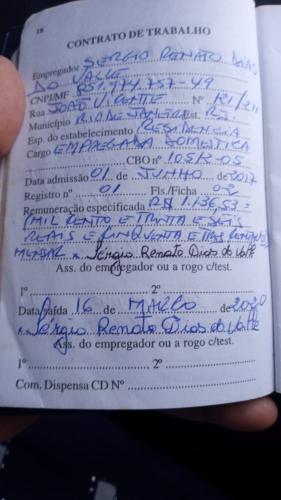 18
CONTRATO DE TRABALHO
Empregador SERGIO RENATO DIAS
DO VALLE
CNPJ/MF 851.474.757-49
Rua JOÃO VICENTE Nº R1/211
Município RIO DE JANEIRO Est. RJ
Esp. do estabelecimento RESIDENCIA
Cargo EMPREGADA DOMESTICA
CBO nº
Data admissão 01 de JUNHO de 2017
Registro nº 01 Fls./Ficha 02
Remuneração especificada R$ 1.136,53 =
(MIL CENTO E TRINTA E SEIS
REAIS E CINQUENTA E TRES CENTAVOS
MENSAL x Sérgio Renato Dias do Valle
Ass. do empregador ou a rogo c/test.
1º 2º
Data saída 16 de MARÇO de 2020
x Sérgio Renato Dias do Valle
Ass. do empregador ou a rogo c/test.
1º 2º
Com. Dispensa CD Nº